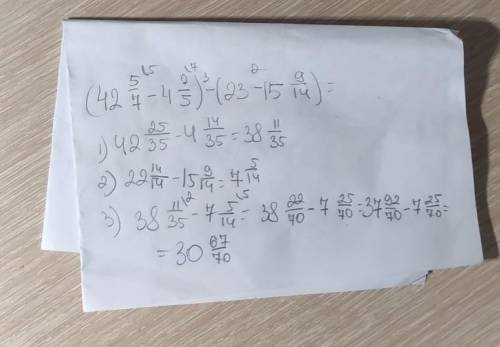 (42 5/7 \5 - 4 2/5 \7) -³ (23 -² 15 9/14) =
1) 42 25/35 - 4 14/35 = 38 11/35
2) 22 14/14 - 15 9/14 = 7 5/14
3) 38 11/35 \2 - 7 5/14 \5 = 38 22/70 - 7 25/70 = 37 92/70 - 7 25/70 =
= 30 67/70